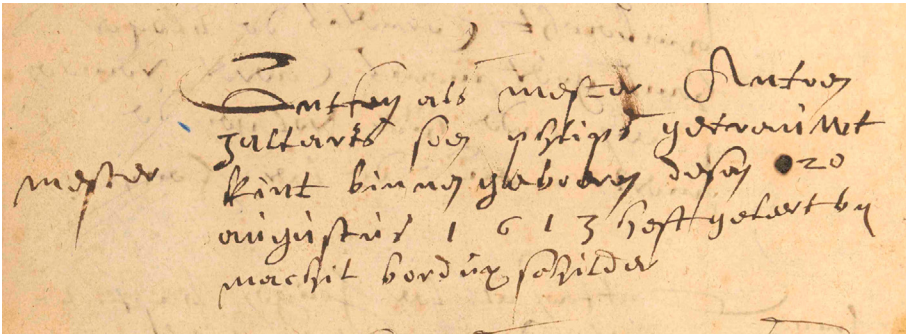 Ontfen als mester Antoen
zallarts soen philips getrauwt
mester
kint binnen geboeren desen 20
augustus 1613 heft geleert by
machil bordux schilder